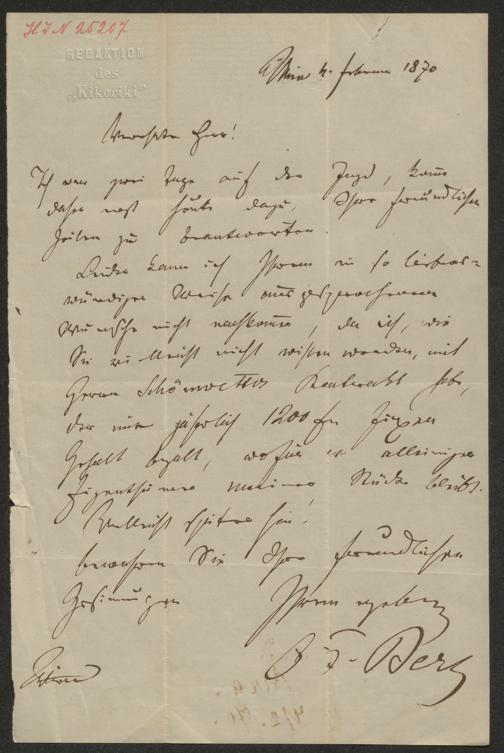 HIN 25207
REDAKTION
des
„Kikeriki“
Wien 4. Februar 1870
Ich war zwei Tage auf der Jagd, komme
daher erst heute dazu, Ihre freundlichen
Zeilen zu beantworten.
Leider kann ich Ihrem in so liebens-
würdiger Weise ausgesprochenen
Wunsche nicht nachkommen, da ich, wie
Sie vielleicht nicht wissen werden, mit
Herrn Kontrakt habe,
der mir jährlich 1200 fl fixen
Gehalt bezahlt, wofür er alleiniger
Eigenthümer meiner Stücke bleibt.
Vielleicht später hin!
bewahren Sie Ihre freundlichen
Gesinnungen
Ihrem ergebenen
O. F. Berg